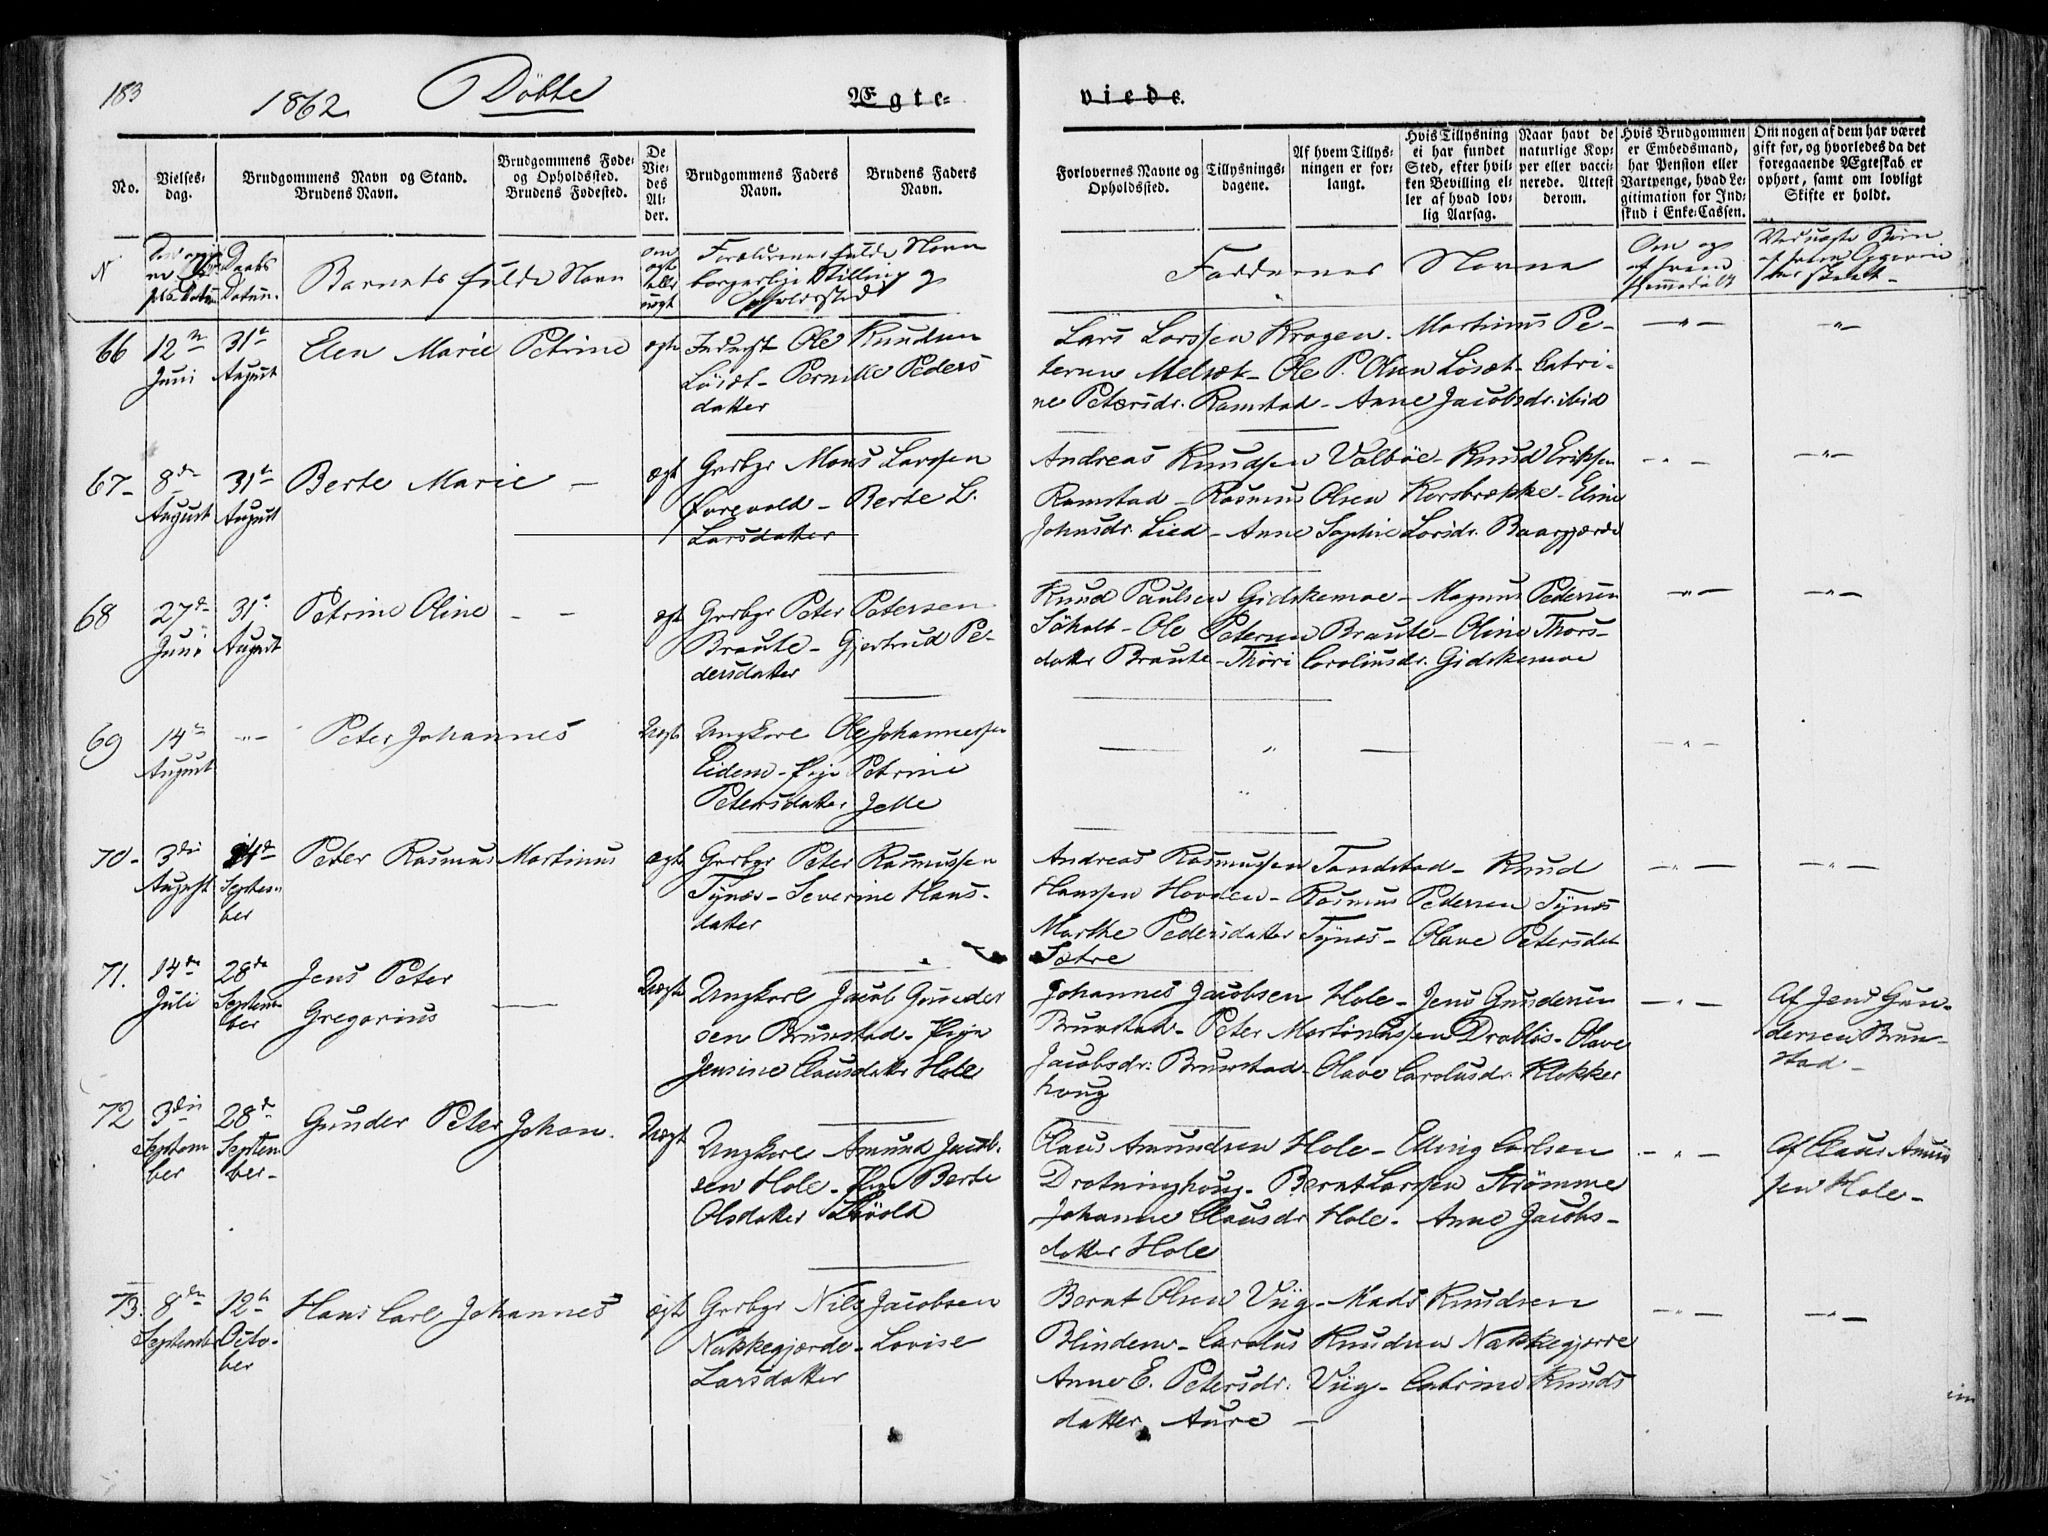 183
1862
Döbte
Ægte-
viede.
No.
Vielses-
dag.
Brudgommens Navn og Stand.
Brudens Navn.
Brudgommens Føde-
og Opholdssted.
Brudens Fødested.
De
Vie-
des
Al-
der.
Brudgommens Faders
Navn.
Brudens Faders
Navn.
Forlovernes Navne og
Opholdssted.
Tillysnings-
dagene.
Af hvem Tillys-
ningen er for-
langt.
Hvis Tillysning
ei har fundet
Sted, efter hvil-
ken Bevilling el-
ler af hvad lov-
lig Aarsag.
Naar havt de
naturlige Kop-
per eller vacci-
nerede. Attest
derom.
Hvis Brudgommen
er Embedsmand,
har Pension eller
Vartpenge, hvad Le-
gitimation for Ind-
skud i Enke-Cassen.
Om nogen af dem har været
gift før, og hvorledes da det
foregaaende Ægteskab er
ophørt, samt om lovligt
Skifte er holdt.
N
Daabs
Datum.
Barnets fulde Navn
om
ægte
eller
uægt
Forældrenes fulde Navn
borgerlige Stilling og
Opholdssted
Faddernes Navne
Om og
af hvem
hjemmedöbt
Ved uægte Börn
af hvem
66 12te Juni
31te August
Elen Marie Petrine
ægte
Inderst Ole Knudsen
Lösæt - Pernille Peders
datter
Lars Larssen Kragen. Martinus Pe-
tersen Melsæt - Ole P. Olsen Lösæt - Catri-
ne Petersdr. Ramstad - Anne Jacobsdr. ibid
67- 8de August
31te August
Berte Marie -
ægt
Grbgr Mons Larssen
Furevold - Berte L.
Larsdatter
Andreas Knudsen Valböe - Knud Eriksen
Ramstad - Rasmus Olsen Korsbrække - Eline
Johnsdr. Lied - Anne Sophie Larsdr. Baargjerde
68 27de Juni
31te August
Petrine Oline - -
ægt
Grbgr Peter Petersen
Braute - Gjertrud Pe-
dersdatter
Knud Paulsen Gidskemoe - Magnus Pedersen
Söholt - Ole Petersen Braute - Oline Thors-
datter Braute - Thöri Carolinusdr. Gidskemoe
69 14de August
-"-
Peter Johannes
Uægt
Ungkarl Ole Johannessen
Eidem - Pige Petrine
Petersdatter Jelle
70- 3die August
14de Septem-
ber
Peter Rasmus Martinus
ægt
Grbgr Peter Rasmussen
Tynæs - Severine Hans-
datter
Andreas Rasmussen Tandstad - Knud
Hanssen Hovden - Rasmus Pedersen Tynæs
Marthe Pedersdatter Tynæs - Olave Petersdat
Sætre
71. 14de Juli
28de Septem-
ber
Jens Peter
Gregorius -
Uægte
Ungkarl Jacob Gunder
sen Brunstad - Pige
Jensine Clausdatter Hole
Johannes Jacobsen Hole - Jens Gundersen
Brunstad - Peter Martinussen Drabløs - Olave
Jacobsdr. Brunstad - Olave Carolusdr. Klokker
houg
Af Jens Gun-
dersen Brun-
stad -
72 3die Septem
ber
28de Septem
ber-
Gunder Peter Johan.
Uægt
Ungkarl Amund Jacob-
sen Hole - Pige Berte
Olsdatter Lövold
Claus Amundsen Hole - Elling Carlsen
Drotninghoug - Bernt Larssen Strömme
Johanne Clausdr Hole - Anne Jacobs-
datter Hole
Af Claus Amun
sen Hole -
73. 8de September
12te Octo-
ber
Hans Carl Johannes
ægt
Grbgr Nils Jacobsen
Nakkegjærde - Lovise
Larsdatter
Bernt Olsen Viig - Mads Knudsen
Blindem - Carolus Knudsen Nakkegjerde
Anne E. Petersdr. Viig - Catrine Knuds
datter Aure -